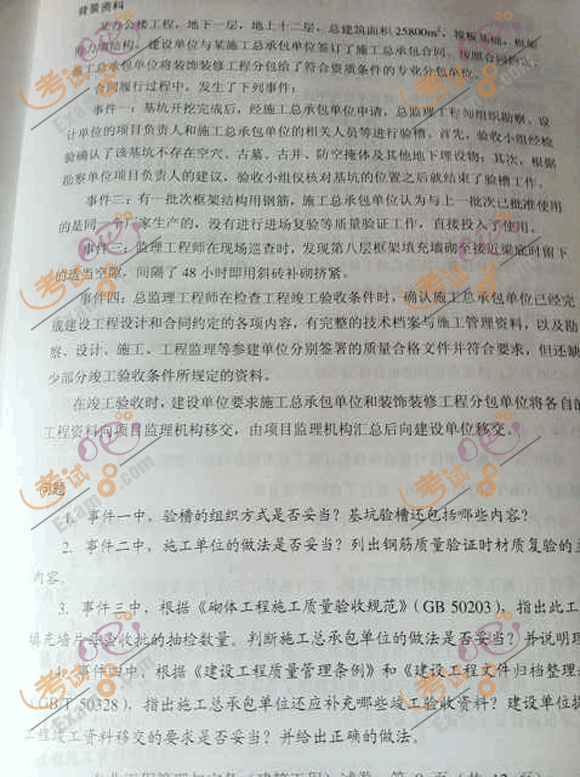 背景资料
某办公楼工程，地下一层，地上十二层，总建筑面积25800m²，筏板基础，框架
剪力墙结构。建设单位与某施工总承包单位签订了施工总承包合同。按照合同约定，
施工总承包单位将装饰装修工程分包给了符合资质条件的专业分包单位。
合同履行过程中，发生了下列事件：
事件一：基坑开挖完成后，经施工总承包单位申请，总监理工程师组织勘察、设
计单位的项目负责人和施工总承包单位的相关人员等进行验槽。首先，验收小组经检
验确认了该基坑不存在空穴、古墓、古井、防空掩体及其他地下埋设物；其次，根据
勘察单位项目负责人的建议，验收小组仅核对基坑的位置之后就结束了验槽工作。
事件二：有一批次框架结构用钢筋，施工总承包单位认为与上一批次已批准使用
的是同一个厂家生产的，没有进行进场复验等质量验证工作，直接投入了使用。
事件三：监理工程师在现场巡查时，发现第八层框架填充墙砌至接近梁底时留下
的适当空隙，间隔了48小时即用斜砖补砌挤紧。
事件四：总监理工程师在检查工程竣工验收条件时，确认施工总承包单位已经完
成建设工程设计和合同约定的各项内容，有完整的技术档案与施工管理资料，以及勘
察、设计、施工、工程监理等参建单位分别签署的质量合格文件并符合要求，但还缺
少部分竣工验收条件所规定的资料。
在竣工验收时，建设单位要求施工总承包单位和装饰装修工程分包单位将各自的
工程资料向项目监理机构移交，由项目监理机构汇总后向建设单位移交。
问题
1. 事件一中，验槽的组织方式是否妥当？基坑验槽还包括哪些内容？
2. 事件二中，施工单位的做法是否妥当？列出钢筋质量验证时材质复验的
内容。
3. 事件三中，根据《砌体工程施工质量验收规范》（GB 50203），指出此工
填充墙片每验收批的抽检数量。判断施工总承包单位的做法是否妥当？并说明理
4. 事件四中，根据《建设工程质量管理条例》和《建设工程文件归档整理
（GB/T 50328），指出施工总承包单位还应补充哪些竣工验收资料？建设单位
工程竣工资料移交的要求是否妥当？并给出正确的做法。
考试吧
Exam8.com